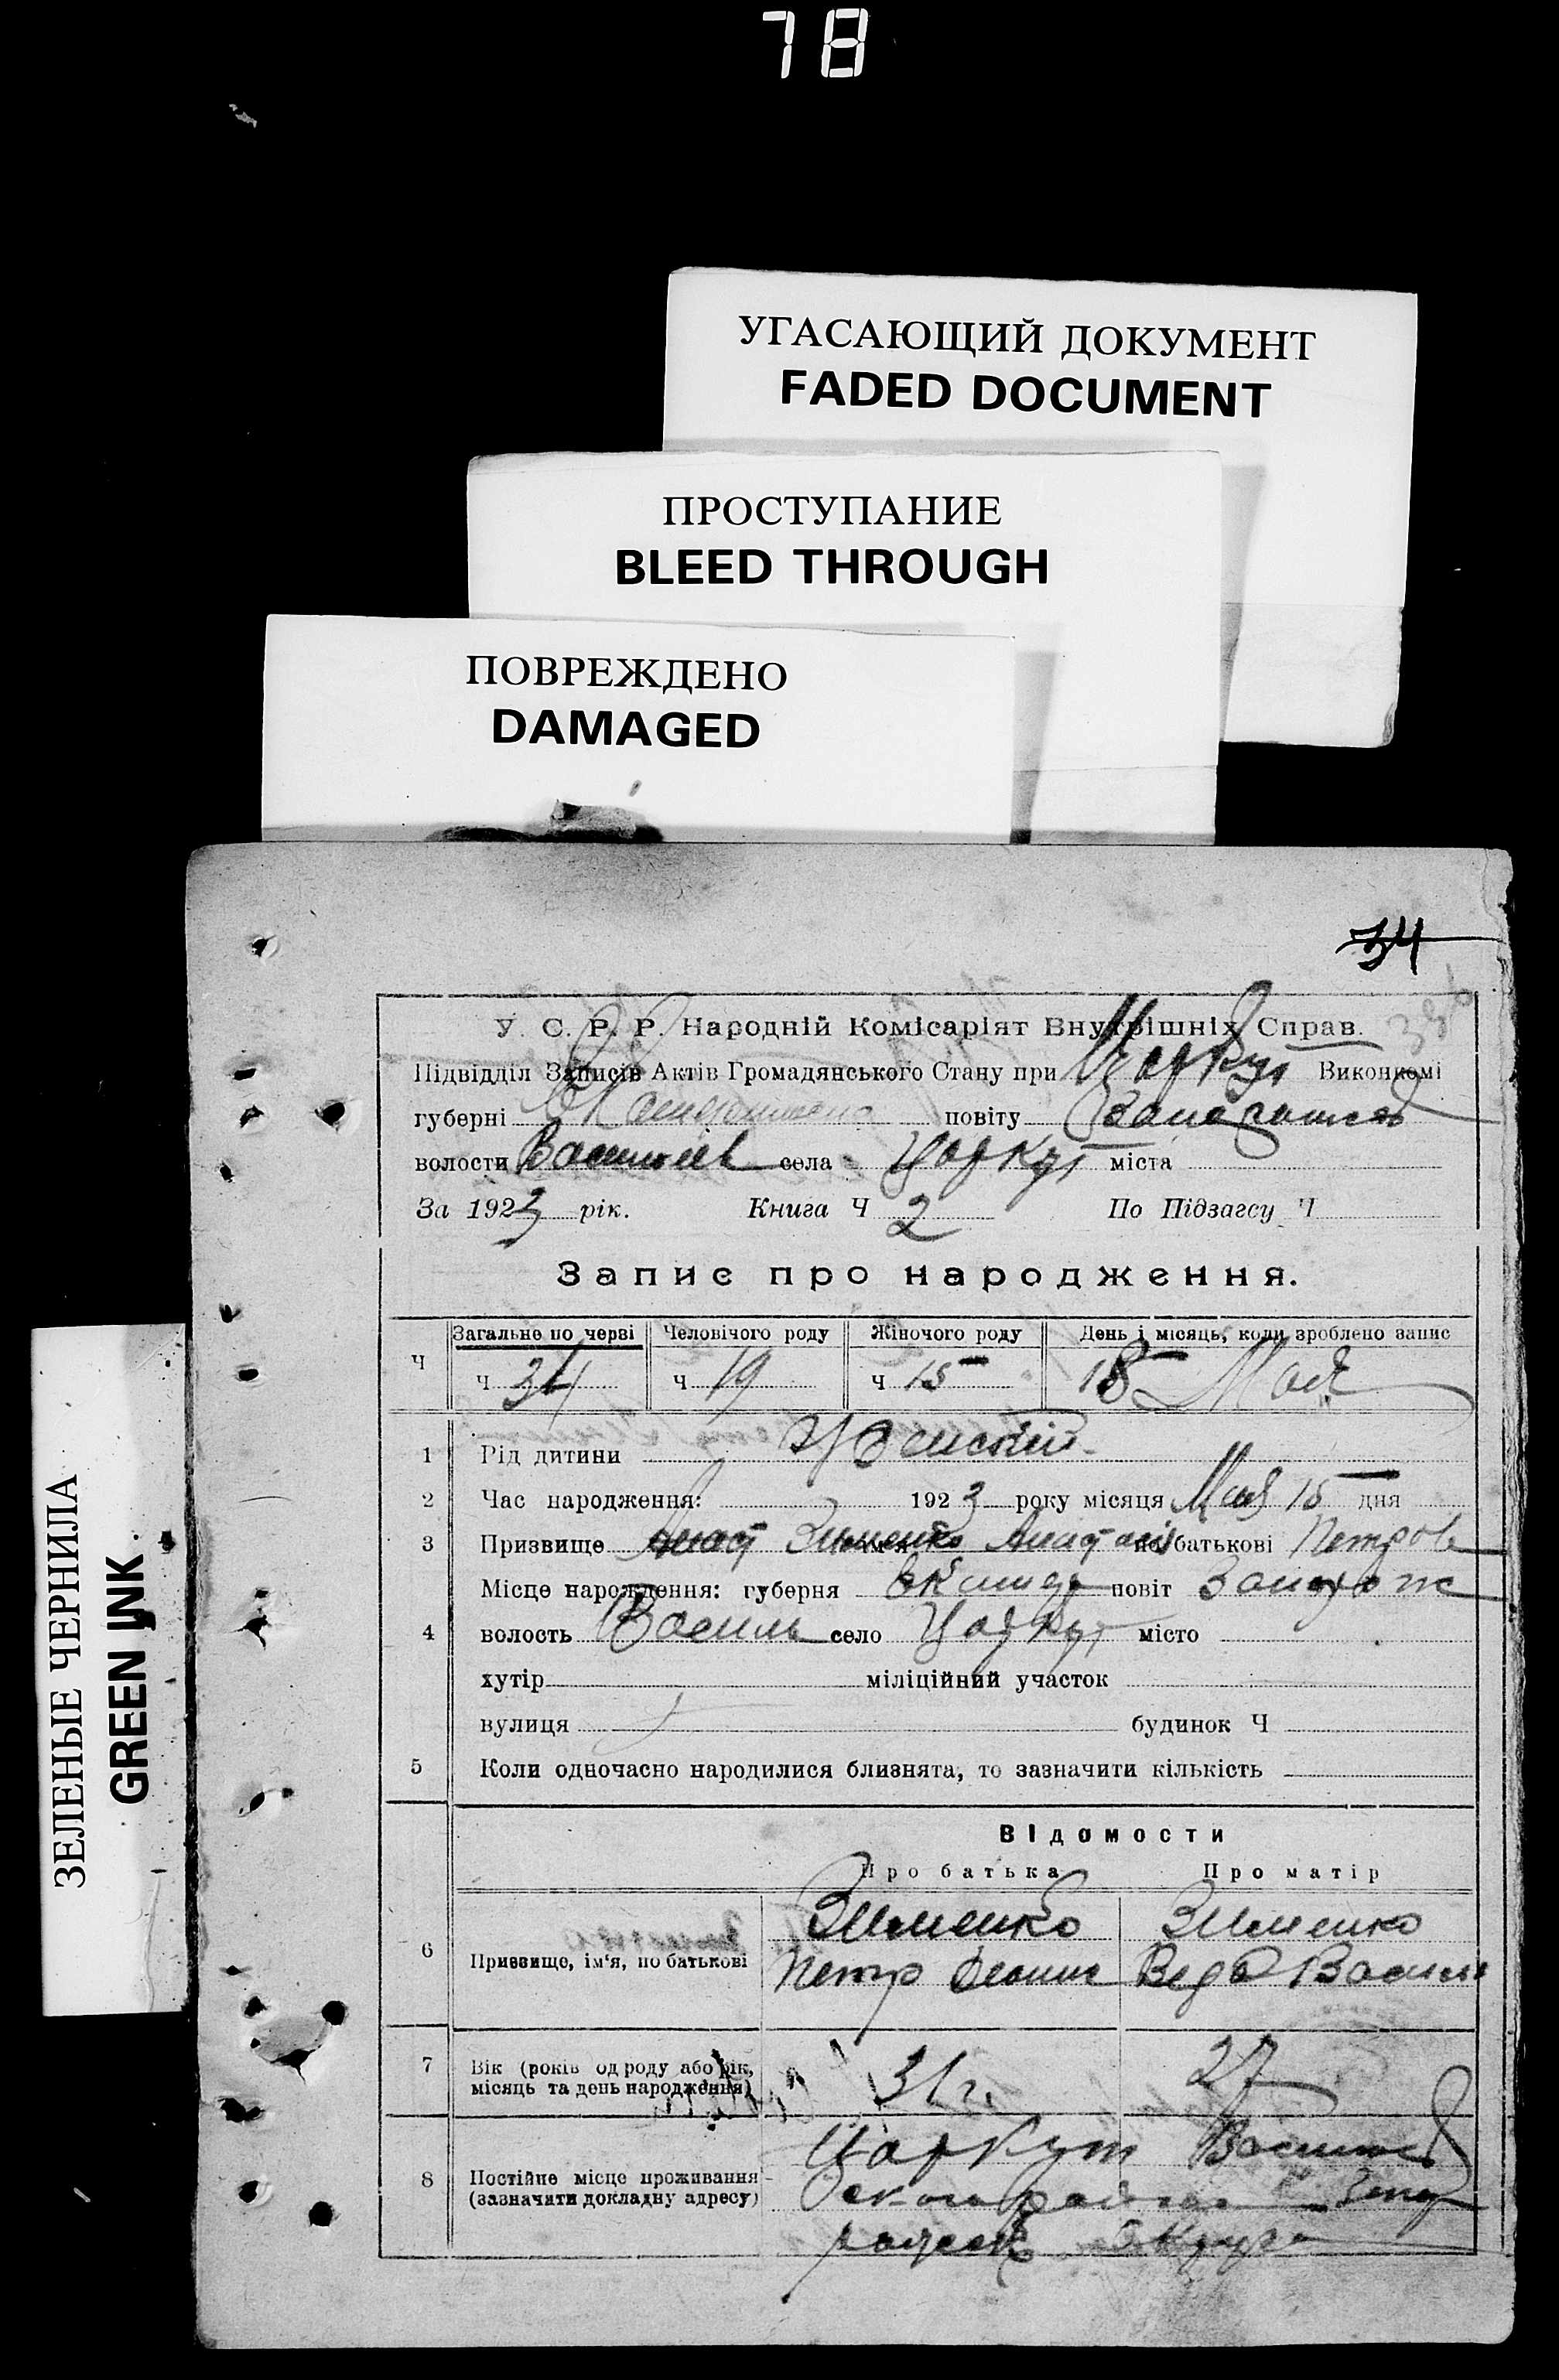 78
УГАСАЮЩИЙ ДОКУМЕНТ
FADED DOCUMENT
ПРОСТУПАНИЕ
BLEED THROUGH
ПОВРЕЖДЕНО
DAMAGED
ЗЕЛЕНЫЕ ЧЕРНИЛА
GREEN INK
34
У. С. Р. Р. Народній Комісаріят Внутрішніх Справ.
Підвідділ Записів Актів Громадянського Стану при Царкут Виконкомі
губерні повіту
волости села Царкут міста
За 1923 рік. Книга Ч 2 По Підзагсу Ч
Запис про народження.
Загальне по черві Человічого роду Жіночого роду День і місяць, коли зроблено запис
Ч ч 34 ч 19 ч 15 18 Мая
1 Рід дитини Женский
2 Час народження: 1923 року місяця Мая 15 дня
3 Призвище Анаст Зименко по батькові Петров
Місце народження: губерня повіт Запорож
4 волость Василь село Царкут місто
хутір міліційний участок
вулиця будинок Ч
5 Коли одночасно народилися близнята, то зазначити кількість
Відомости
Про батька Про матір
Зименко Зименко
6 Призвище, ім'я, по батькові Петр Василь
7 Вік (років од роду або рік, 31 г. 27
місяць та день народження)
Царкут
8 Постійне місце проживання
(зазначити докладну адресу)